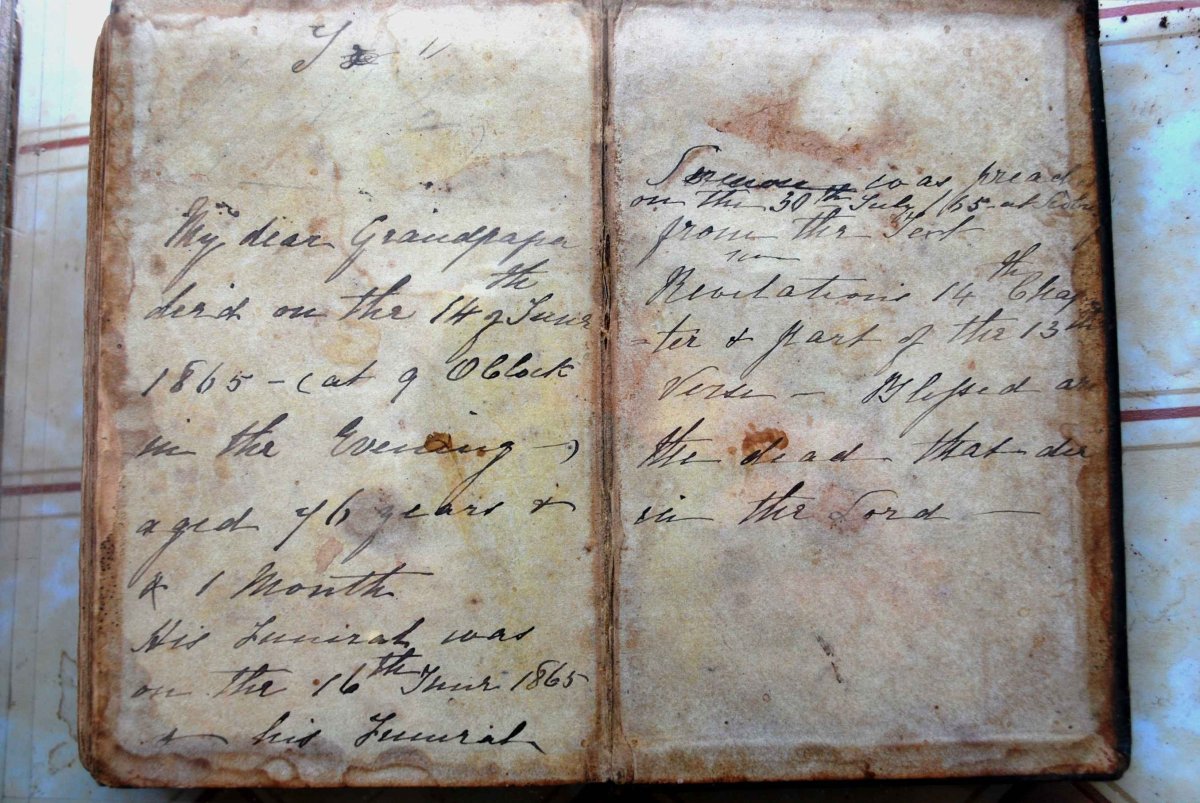 My dear Grandpapa
deid on the 14th of June
1865 - (at 9 OClock
in the Evening -)
aged 76 years &
& 1 Month
His Funiral was
on the 16th June 1865
& his Funiral
Sermon was preach
on the 30th July /65 at
from the Text
Revelations 14th Chap
-ter & part of the 13th
Verse - Blessed are
the dead that die
in the Lord -